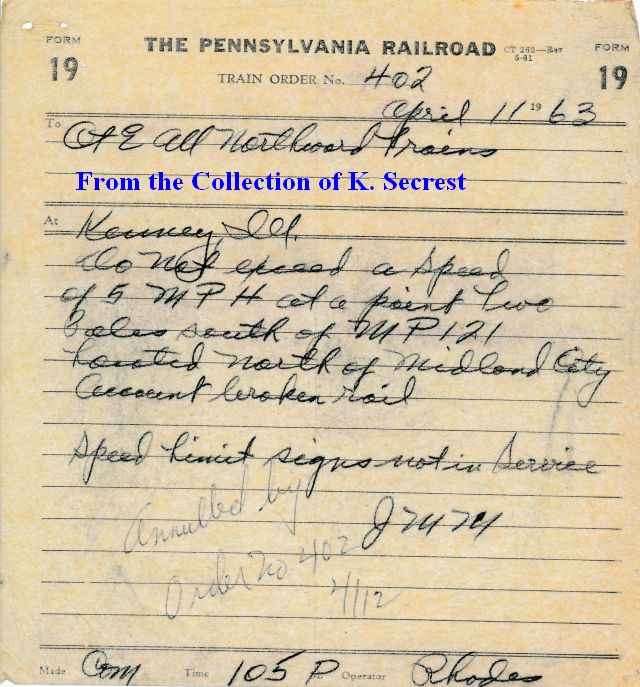 FORM 19
THE PENNSYLVANIA RAILROAD
CT 262—Rev 5-61
FORM 19
TRAIN ORDER No. 402
April 11 1963
To C&E All Northward Trains
From the Collection of K. Secrest
At Kenney, Ill.
Do Not exceed a speed
of 5 MPH at a point two
Poles south of MP 121
Located north of Midland City
Account broken rail
Speed limit signs not in service
JMM
Annulled by
Order No 402
4/12
Made Com Time 105 P M. Operator Rhodes